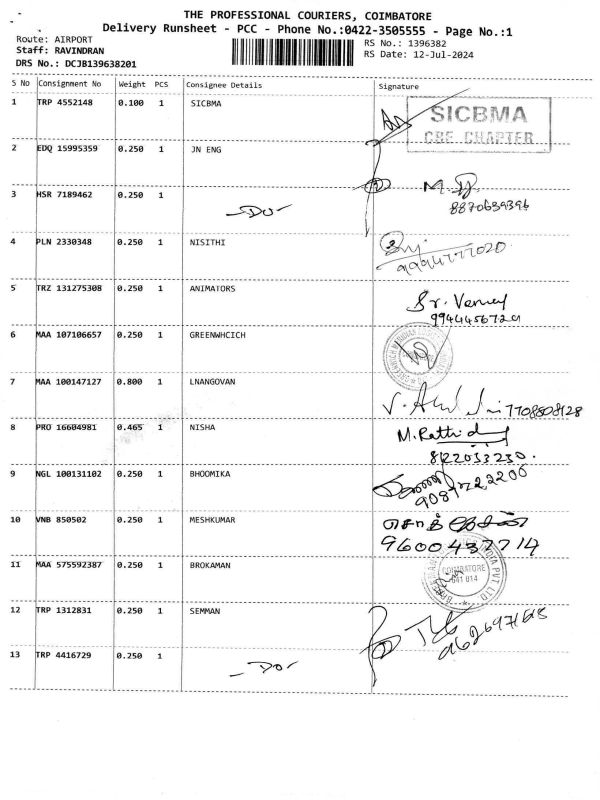 THE PROFESSIONAL COURIERS, COIMBATORE
Delivery Runsheet - PCC - Phone No.:0422-3505555 - Page No.:1
Route: AIRPORT
RS No.: 1396382
Staff: RAVINDRAN
RS Date: 12-Jul-2024
DRS No.: DCJB139638201
S No Consignment No Weight PCS Consignee Details Signature
1 TRP 4552148 0.100 1 SICBMA
SICBMA
CBE CHAPTER
2 EDQ 15995359 0.250 1 JN ENG
3 HSR 7189462 0.250 1 -Do-
8870639396
4 PLN 2330348 0.250 1 NISITHI
9994777020
5 TRZ 131275308 0.250 1 ANIMATORS
9944456729
6 MAA 107106657 0.250 1 GREENWHCICH
7 MAA 100147127 0.800 1 LNANGOVAN
7708508128
8 PRO 16604981 0.465 1 NISHA
M. Rathid
8122033230.
9 NGL 100131102 0.250 1 BHOOMIKA
10 VNB 850502 0.250 1 MESHKUMAR
9600437714
11 MAA 575592387 0.250 1 BROKAMAN
COIMBATORE
641 014
12 TRP 1312831 0.250 1 SEMMAN
13 TRP 4416729 0.250 1 -Do-